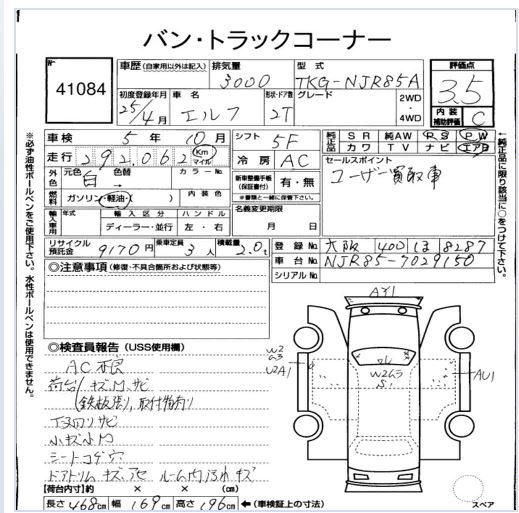 バン・トラックコーナー
No.
41084
車歴（自家用以外は記入） 排気量 3000 型式 TKG-NJR85A
評価点 3.5
内装補助評価 C
初度登録年月 25/4月 車名 エルフ 形状・ドア数 2T グレード 2WD・4WD
車検 5年10月 シフト 5F
純正品 SR 純AW PS PW
カワ TV ナビ エアB
走行 292,062 Km マイル 冷房 AC
セールスポイント
ユーザー買取車
外色 元色 白 色替 → カラーNo.
燃料 ガソリン・軽油・( ) 内装色
新車整備手帳（保証書付） 有・無
※書類と一緒に保管下さい。
輸入車用 年式 輸入区分 ディーラー・並行 ハンドル 左・右
名義変更期限 月 日
リサイクル預託金 9170円 乗車定員 3人 積載量 2.0t
登録No. 大阪 400 は 8287
車台No. NJR85-7029150
シリアルNo.
◎注意事項（修復・不具合箇所および状態等）
◎検査員報告（USS使用欄）
AC不良
荷台 キズ、凹、サビ
（鉄板張り、取付物有り）
下廻りサビ
小キズ小凹
シートコゲ穴
ドアトリム キズ ルーム内汚れ キズ
【荷台内寸】約 × × (cm)
長さ 468cm 幅 169cm 高さ 196cm ←（車検証上の寸法）
AY1
W2
ムラ
WZA1
W2ムラ
S1
AU1
スペア
※必ず油性ボールペンをご使用下さい。水性ボールペンは使用できません。
←純正品に限り該当に○をつけて下さい。